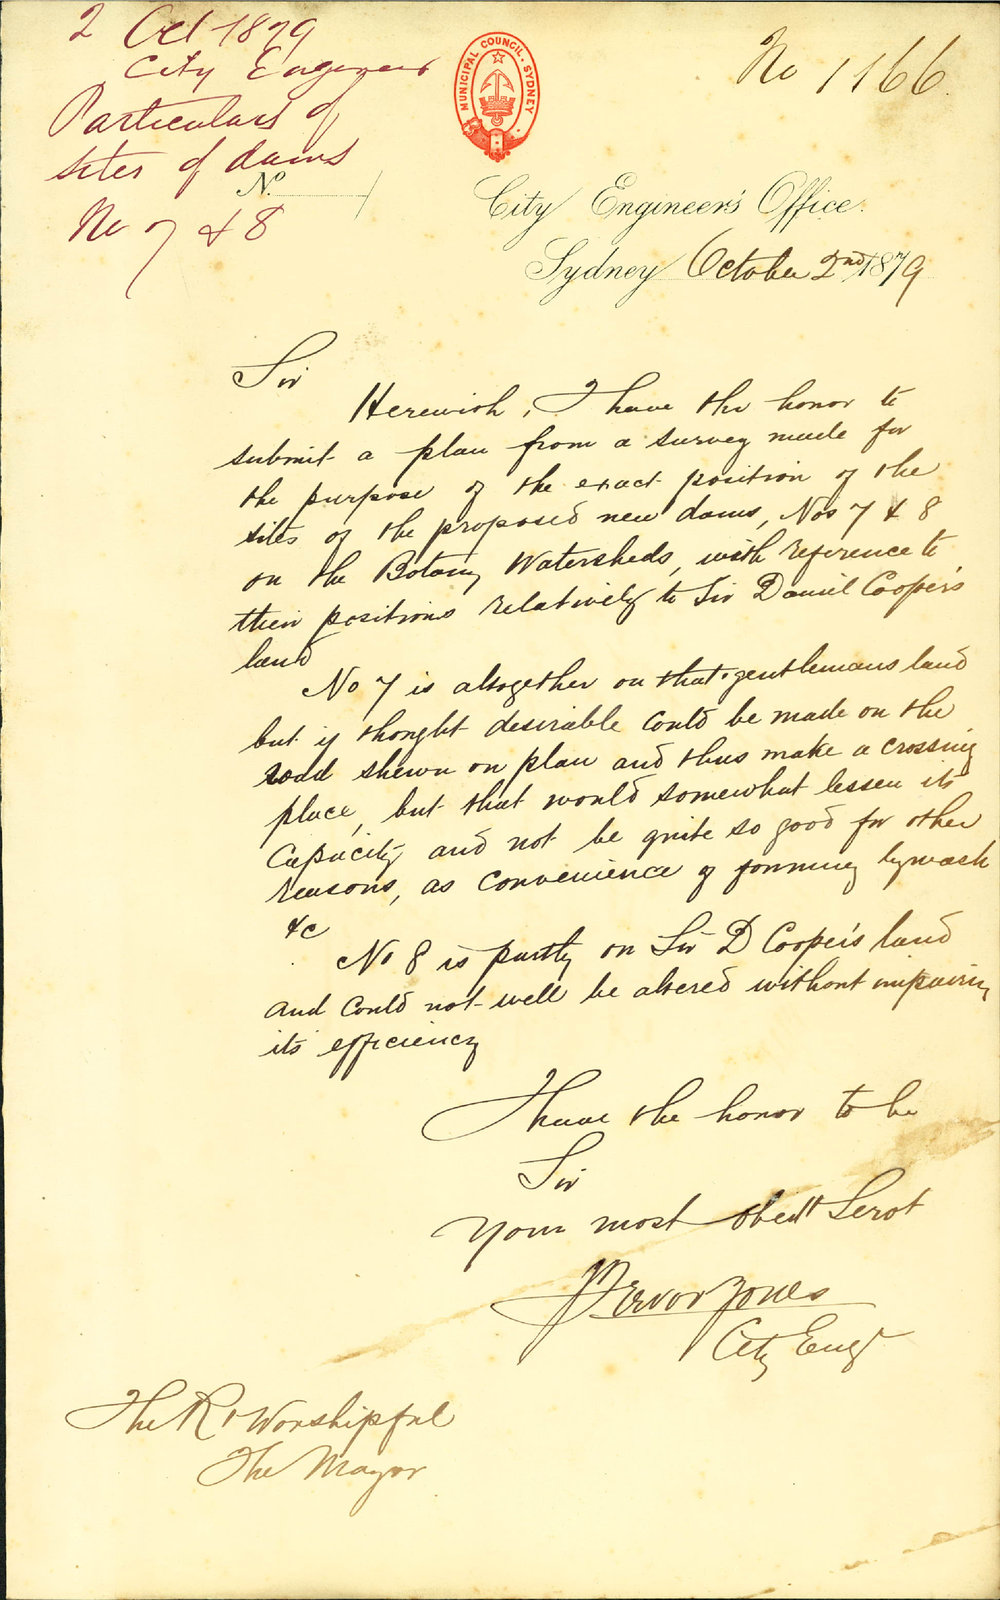 2 Oct 1879
City Engineer
Particulars of
sites of dams
No 7 & 8
No.
MUNICIPAL COUNCIL. SYDNEY
No 1166
City Engineer's Office.
Sydney October 2nd 1879
Sir
Herewith, I have the honor to
submit a plan from a survey made for
the purpose of the exact position of the
sites of the proposed new dams, Nos 7 & 8
on the Botany Watersheds, with reference to
their positions relatively to Sir Daniel Cooper's
land
No 7 is altogether on that gentlemans land
but if thought desirable could be made on the
road shewn on plan and thus make a crossing
place, but that would somewhat lessen its
capacity and not be quite so good for other
reasons, as convenience of forming bywash
&c
No 8 is partly on Sir D Cooper's land
and could not well be altered without impairing
its efficiency
I have the honor to be
Sir
Your most obedt Servt
Trevor Jones
City Engr
The Rt Worshipful
The Mayor